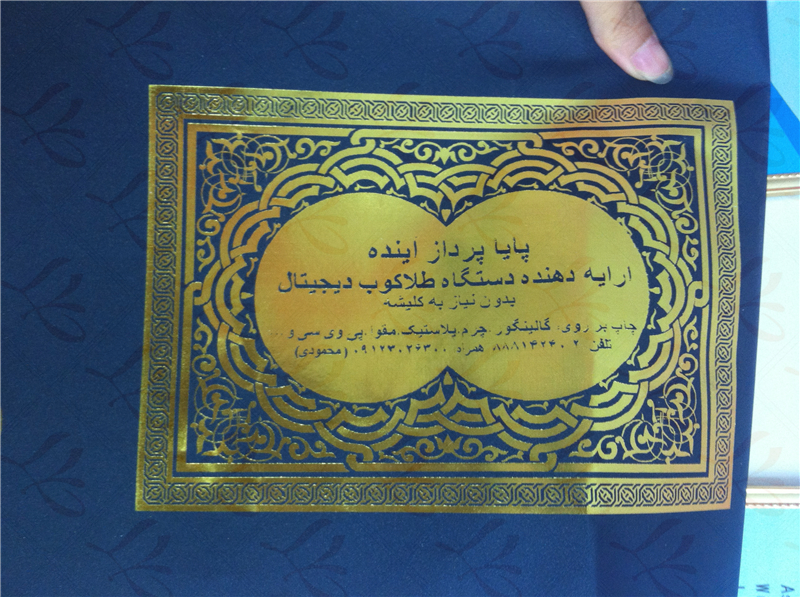 پایا پرداز اینده
ارایه دهنده دستگاه طلاکوب دیجیتال
بدون نیاز به کلیشه
چاپ بر روی: گالینگور. چرم. پلاستیک. مقوا. پی وی سی و
تلفن ۸۸۸۱۴۲۴۰۲ همراه ۰۹۱۲۳۰۲۶۳۰۰ (محمودی)